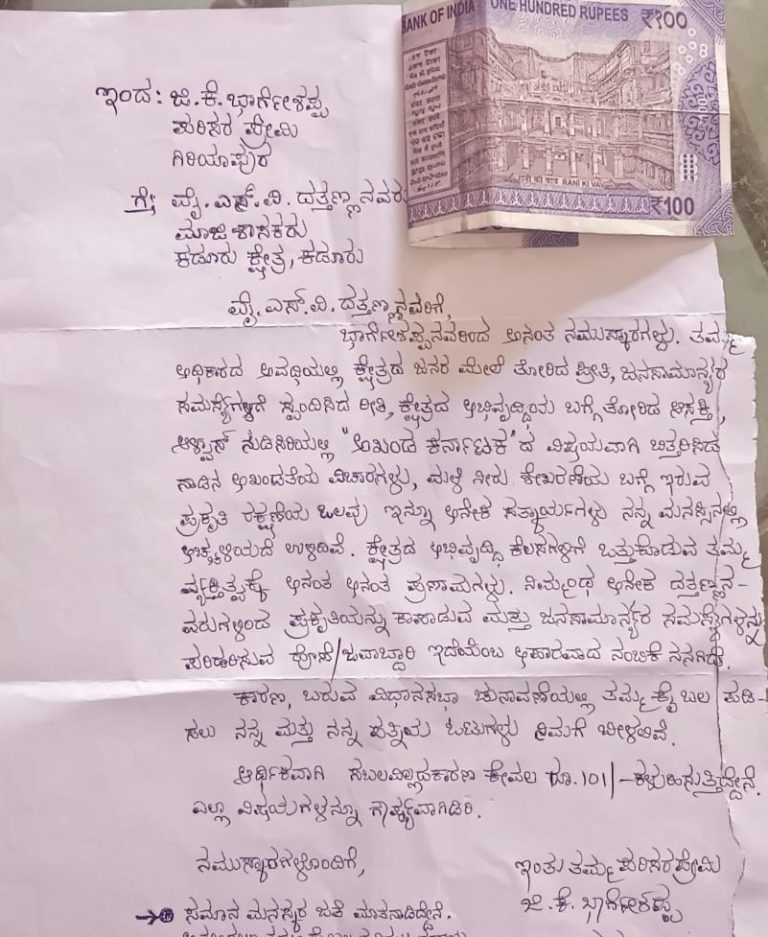 BANK OF INDIA ONE HUNDRED RUPEES ₹100
RANI KI VAV
₹100
ಇಂದ: ಜಿ.ಕೆ.ಭಾರ್ಗೇಶಪ್ಪ
ಪರಿಸರ ಪ್ರೇಮಿ
ಗಿರಿಯಾಪುರ
ಗೆ; ವೈ.ಎಸ್.ವಿ.ದತ್ತಣ್ಣನವರು
ಮಾಜಿ ಶಾಸಕರು
ಕಡೂರು ಕ್ಷೇತ್ರ, ಕಡೂರು
ವೈ.ಎಸ್.ವಿ. ದತ್ತಣ್ಣನವರಿಗೆ,
ಭಾರ್ಗೇಶಪ್ಪನವರಿಂದ ಅನಂತ ನಮಸ್ಕಾರಗಳು. ತಮ್ಮ
ಅಧಿಕಾರದ ಅವಧಿಯಲ್ಲಿ ಕ್ಷೇತ್ರದ ಜನರ ಮೇಲೆ ತೋರಿದ ಪ್ರೀತಿ, ಜನಸಾಮಾನ್ಯರ
ಸಮಸ್ಯೆಗಳಿಗೆ ಸ್ಪಂದಿಸಿದ ರೀತಿ, ಕ್ಷೇತ್ರದ ಅಭಿವೃದ್ಧಿಯ ಬಗ್ಗೆ ತೋರಿದ ಆಸಕ್ತಿ,
ಆಳ್ವಾಸ್ ನುಡಿಸಿರಿಯಲ್ಲಿ "ಅಖಂಡ ಕರ್ನಾಟಕ"ದ ವಿಷಯವಾಗಿ ಬಿತ್ತರಿಸಿದ
ನಾಡಿನ ಅಖಂಡತೆಯ ವಿಚಾರಗಳು, ಮಳೆ ನೀರು ಶೇಖರಣೆಯ ಬಗ್ಗೆ ಇರುವ
ಪ್ರಕೃತಿ ರಕ್ಷಣೆಯ ಒಲವು ಇನ್ನೂ ಅನೇಕ ಸತ್ಕಾರ್ಯಗಳು ನನ್ನ ಮನಸ್ಸಿನಲ್ಲಿ
ಅಚ್ಚಳಿಯದೆ ಉಳಿದಿವೆ. ಕ್ಷೇತ್ರದ ಅಭಿವೃದ್ಧಿ ಕೆಲಸಗಳಿಗೆ ಒತ್ತುಕೊಡುವ ತಮ್ಮ
ವ್ಯಕ್ತಿತ್ವಕ್ಕೆ ಅನಂತ ಅನಂತ ಪ್ರಣಾಮಗಳು. ನಿಮ್ಮಂಥ ಅನೇಕ ದತ್ತಣ್ಣನ-
ವರುಗಳಿಂದ ಪ್ರಕೃತಿಯನ್ನು ಕಾಪಾಡುವ ಮತ್ತು ಜನಸಾಮಾನ್ಯರ ಸಮಸ್ಯೆಗಳನ್ನು
ಪರಿಹರಿಸುವ ಹೊಣೆ/ಜವಾಬ್ದಾರಿ ಇದೆಯೆಂಬ ಅಪಾರವಾದ ನಂಬಿಕೆ ನನಗಿದೆ.
ಕಾರಣ, ಬರುವ ವಿಧಾನಸಭಾ ಚುನಾವಣೆಯಲ್ಲಿ ತಮ್ಮ ಕೈ ಬಲ ಪಡಿ-
ಸಲು ನನ್ನ ಮತ್ತು ನನ್ನ ಪತ್ನಿಯ ಓಟುಗಳು ನಿಮಗೆ ಬೀಳಲಿವೆ.
ಆರ್ಥಿಕವಾಗಿ ಸಬಲವಿಲ್ಲದಕಾರಣ ಕೇವಲ ರೂ.101/-ಕಳುಹಿಸುತ್ತಿದ್ದೇನೆ.
ಎಲ್ಲಾ ವಿಷಯಗಳನ್ನೂ ಗೌಪ್ಯವಾಗಿಡಿರಿ.
ನಮಸ್ಕಾರಗಳೊಂದಿಗೆ,
ಇಂತು ತಮ್ಮ ಪರಿಸರಪ್ರೇಮಿ
ಜಿ.ಕೆ.ಭಾರ್ಗೇಶಪ್ಪ
ಸಮಾನ ಮನಸ್ಕರ ಜತೆ ಮಾತನಾಡಿದ್ದೇನೆ.